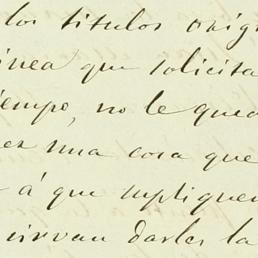 los titulos orig
inea que solicita
iempo, no le qued
ez una cosa que
á que supliquen
sirvan darles la